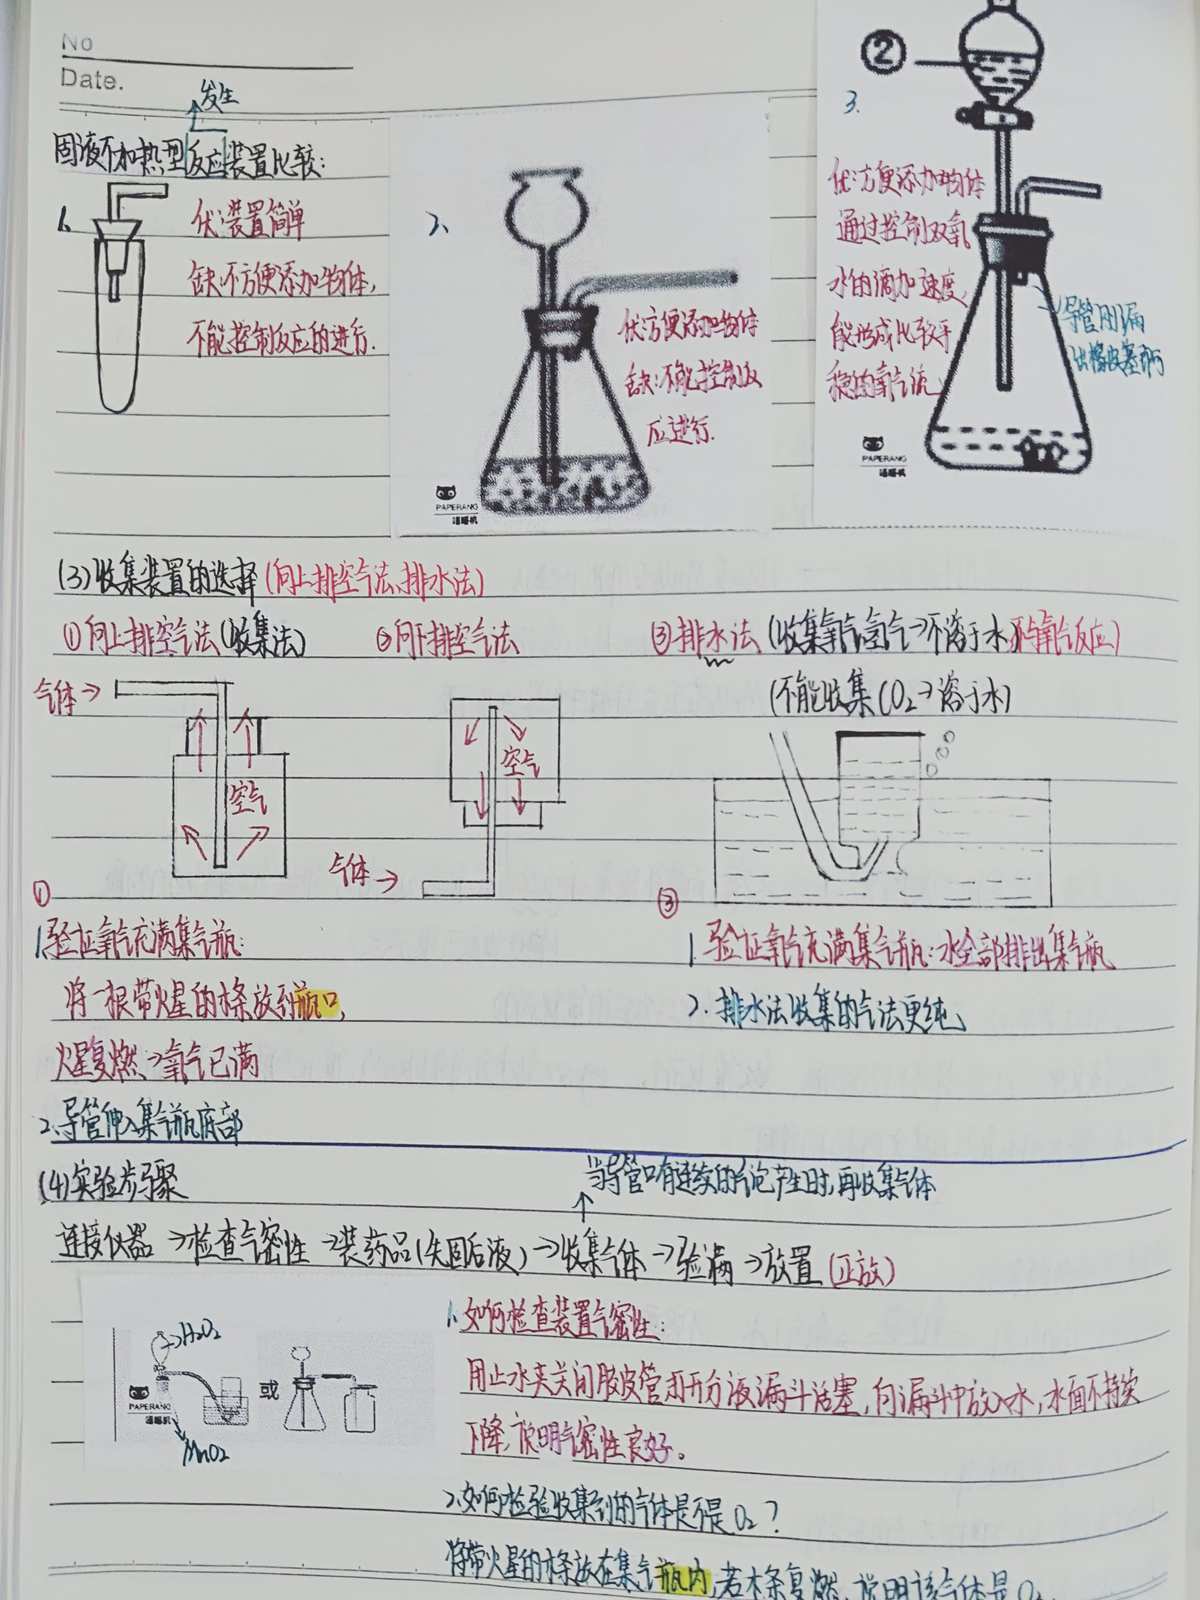 No
Date.
发生
固液不加热型反应装置比较:
1、
优:装置简单
缺:不方便添加物体,
不能控制反应的进行.
2、
优:方便添加物体
缺:不能控制反
应进行.
PAPERANG
喵喵机
②
3.
优:方便添加物体
通过控制双氧
水的滴加速度,
能形成比较平
稳的氧气流
导管刚漏
出橡皮塞即可
PAPERANG
喵喵机
(3)收集装置的选择(向上排空气法、排水法)
①向上排空气法(收集法) ②向下排空气法 ③排水法(收集氧气氢气→不溶于水不与氧气反应)
(不能收集CO2→溶于水)
气体→
空气
空气
气体→
①
③
1.验证氧气充满集气瓶:
将一根带火星的木条放到瓶口,
火星复燃→氧气已满
2.导管伸入集气瓶底部
1.验证氧气充满集气瓶:水全部排出集气瓶
2.排水法收集的气法更纯
(4)实验步骤
当导管口有连续的气泡产生时,再收集气体
连接仪器→检查气密性→装药品(先固后液)→收集气体→验满→放置(正放)
H2O2
或
PAPERANG
喵喵机
MnO2
1.如何检查装置气密性:
用止水夹关闭胶皮管,打开分液漏斗活塞,向漏斗中放入水,水面不持续
下降,说明气密性良好。
2.如何检验收集到的气体是不是O2?
将带火星的木条放在集气瓶内,若木条复燃,说明该气体是O2